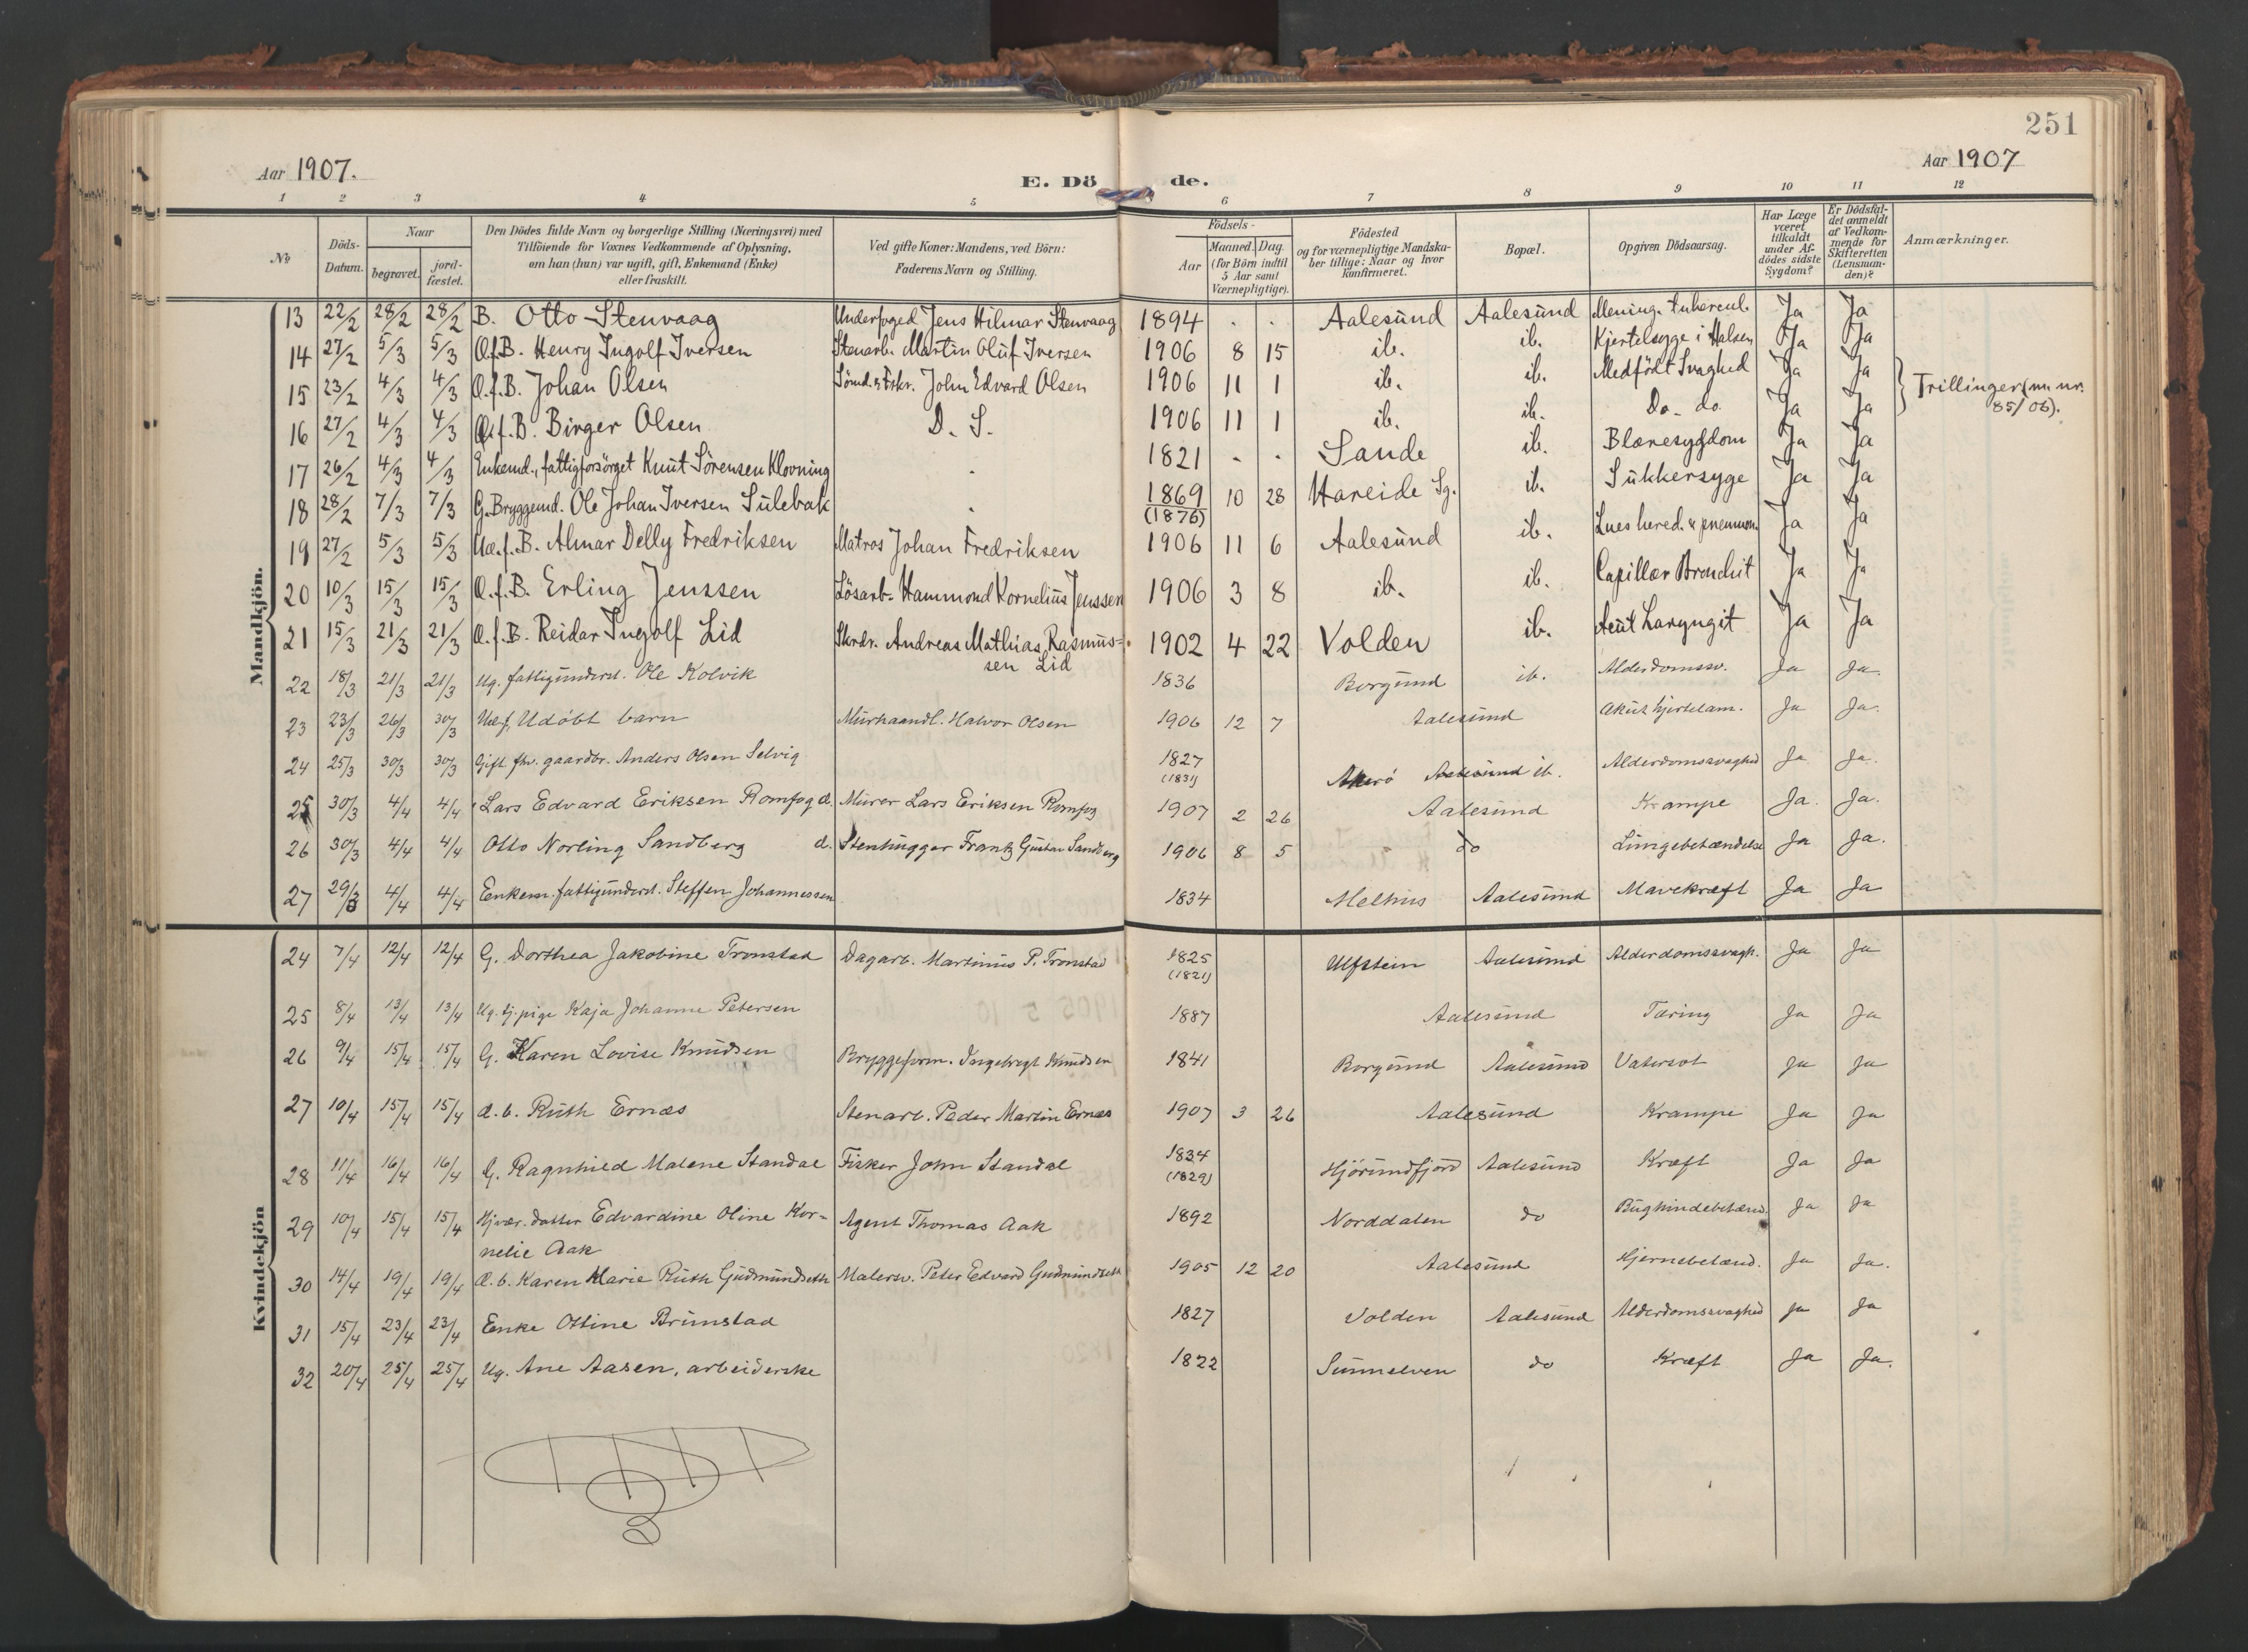 251
Aar 1907.
E. Dö de.
Aar 1907
1 2 3 4 5 6 7 8 9 10 11 12
No
Döds-Datum.
Naar
begravet.
jord-fæstet.
Den Dödes fulde Navn og borgerlige Stilling (Næringsvei) med
Tilföiende for Voxnes Vedkommende af Oplysning,
om han (hun) var ugift, gift, Enkemand (Enke)
eller fraskilt.
Ved gifte Koner: Mandens, ved Börn:
Faderens Navn og Stilling.
Födsels-
Aar
Maaned. Dag.
(for Börn indtil
5 Aar samt
Værnepligtige).
Födested
og for værnepligtige Mandska-
ber tillige: Naar og hvor
konfirmeret.
Bopæl.
Opgiven Dödsaarsag.
Har Læge
været
tilkaldt
under Af-
dödes sidste
Sygdom?
Er Dödsfal-
det anmeldt
af Vedkom-
mende for
Skifteretten
(Lensman-
den)?
Anmærkninger.
Mandkjön.
13 22/2 28/2 28/2 B. Otto Stenvaag Underfoged Jens Hilmar Stenvaag 1894 . . Aalesund Aalesund Mening. tubercul. Ja Ja
14 27/2 5/3 5/3 Æ.f.B. Henry Ingolf Iversen Stenarb. Martin Oluf Iversen 1906 8 15 ib. ib. Kjertelsyge i Halsen Ja Ja
15 23/2 4/3 4/3 Æ.f.B. Johan Olsen Sömd. & Fskr. John Edvard Olsen 1906 11 1 ib. ib. Medfödt Svaghed Ja Ja } Trillinger (m. nr. 85/06).
16 27/2 4/3 4/3 Æ.f.B. Birger Olsen D. S. 1906 11 1 ib. ib. Do. do. Ja Ja
17 26/2 4/3 4/3 Enkemd., fattigforsörget Knut Sörensen Klovning . 1821 . . Sande ib. Blæresygdom Ja Ja
18 28/2 7/3 7/3 G. Bryggemd. Ole Johan Iversen Sulebak . 1869 (1876) 10 28 Hareide Sg. ib. Sukkersyge Ja Ja
19 27/2 5/3 5/3 Uæ.f.B. Almar Delly Fredriksen Matros Johan Fredriksen 1906 11 6 Aalesund ib. Lues hered. & pneumon. Ja Ja
20 10/3 15/3 15/3 Æ.f.B. Erling Jenssen Lösarb. Hammond Kornelius Jenssen 1906 3 8 ib. ib. Capillær Bronchit Ja Ja
21 15/3 21/3 21/3 Æ.f.B. Reidar Ingolf Lid Skrdr. Andreas Mathias Rasmus-
sen Lid 1902 4 22 Volden ib. Acut Laryngit Ja Ja
22 18/3 21/3 21/3 Ug. fattigunderst. Ole Kolvik 1836 Borgund ib. Alderdomssv. Ja Ja.
23 23/3 26/3 30/3 Uæ.f. Udøbt barn Murhaandl. Halvor Olsen 1906 12 7 Aalesund Akut hjertelam. Ja Ja.
24 25/3 30/3 30/3 Gift fhv. gaardbr. Anders Olsen Selvig 1827 (1831) Akerö Aalesund ib. Alderdomssvaghed Ja Ja.
25 30/3 4/4 4/4 Lars Edvard Eriksen Romfog d. Murer Lars Eriksen Romfog 1907 2 26 Aalesund Krampe Ja. Ja.
26 30/3 4/4 4/4 Otto Norling Sandberg d. Stenhugger Frantz Gustav Sandberg 1906 8 5 do Lungebetændelse Ja Ja.
27 29/3 4/4 4/4 Enkem. fattigunderst. Steffen Johannessen 1834 Melhus Aalesund Mavekræft Ja Ja
Kvindekjön
24 7/4 12/4 12/4 G. Dorthea Jakobine Tronstad Dagarb. Martinus P. Tronstad 1825 (1821) Ulfstein Aalesund Alderdomssvagh. Ja Ja
25 8/4 13/4 13/4 Ug. tj. pige Kaja Johanne Petersen 1887 Aalesund Tæring Ja Ja
26 9/4 15/4 15/4 G. Karen Lovise Knudsen Bryggeform. Ingebregt Knudsen 1841 Borgund Aalesund Vatersot Ja Ja
27 10/4 15/4 15/4 Æ. b. Ruth Ernæs Stenarb. Peder Martin Ernæs 1907 3 26 Aalesund Krampe Ja Ja
28 11/4 16/4 16/4 G. Ragnhild Malene Standal Fisker John Standal 1834 (1829) Hjörundfjord Aalesund Kræft Ja Ja
29 10/4 15/4 15/4 Hjvær. datter Edvardine Oline Kor-
nelie Aak Agent Thomas Aak 1892 Norddalen do Bughindebetænd. Ja Ja
30 14/4 19/4 19/4 Æ. b. Karen Marie Ruth Gudmundseth Malersv. Peter Edvard Gudmundseth 1905 12 20 Aalesund Hjernebetænd. Ja Ja.
31 15/4 23/4 23/4 Enke Ottine Brunstad 1827 Volden Aalesund Alderdomssvaghed Ja Ja
32 20/4 25/4 25/4 Ug. Ane Aasen, arbeiderske 1822 Sunnelven do Kræft Ja Ja.